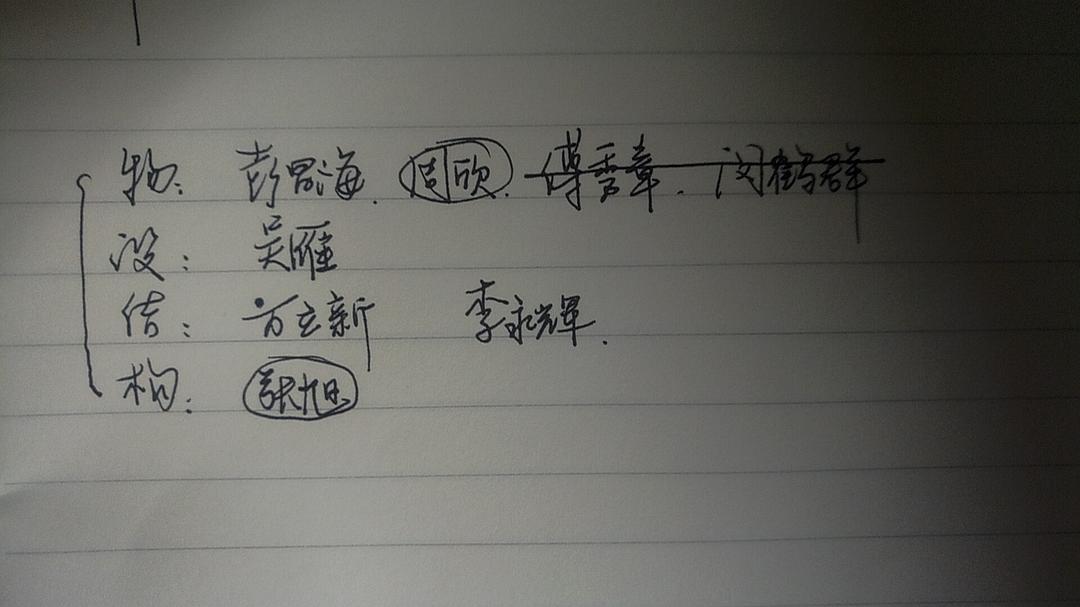 物: 彭昌海. 周欣. 傅秀章. 闵鹤群
设: 吴雁
结: 方立新 李永辉.
构: 张旭